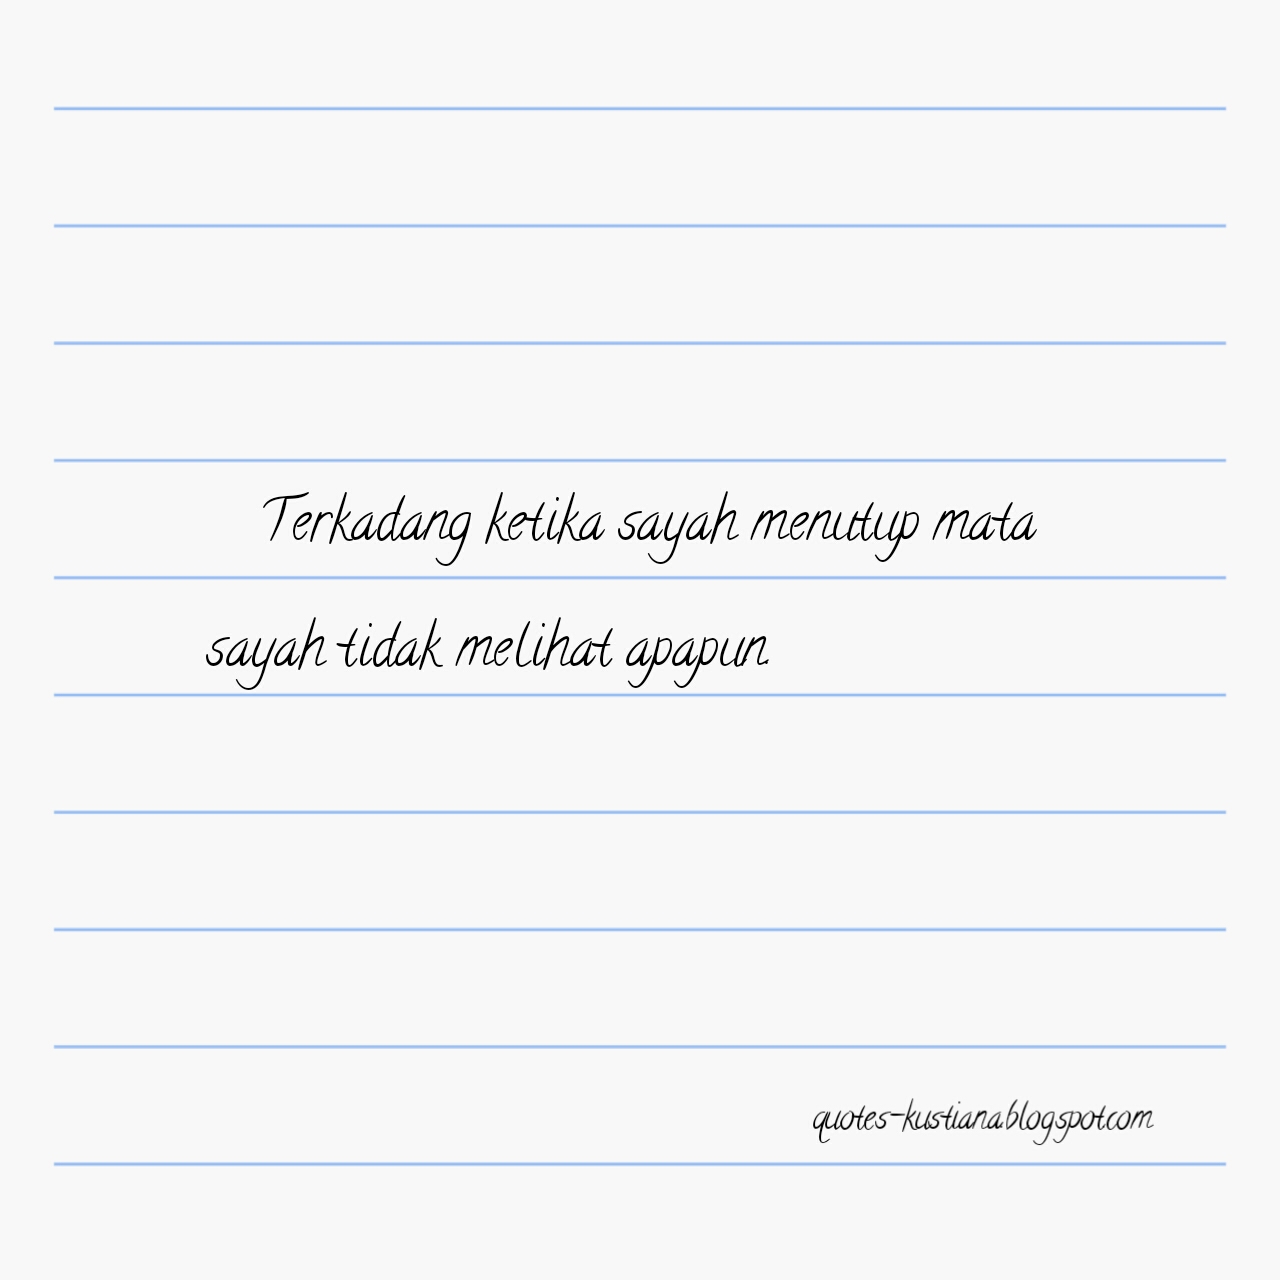 Terkadang ketika sayah menutup mata
sayah tidak melihat apapun.
quotes-kustiana.blogspot.com